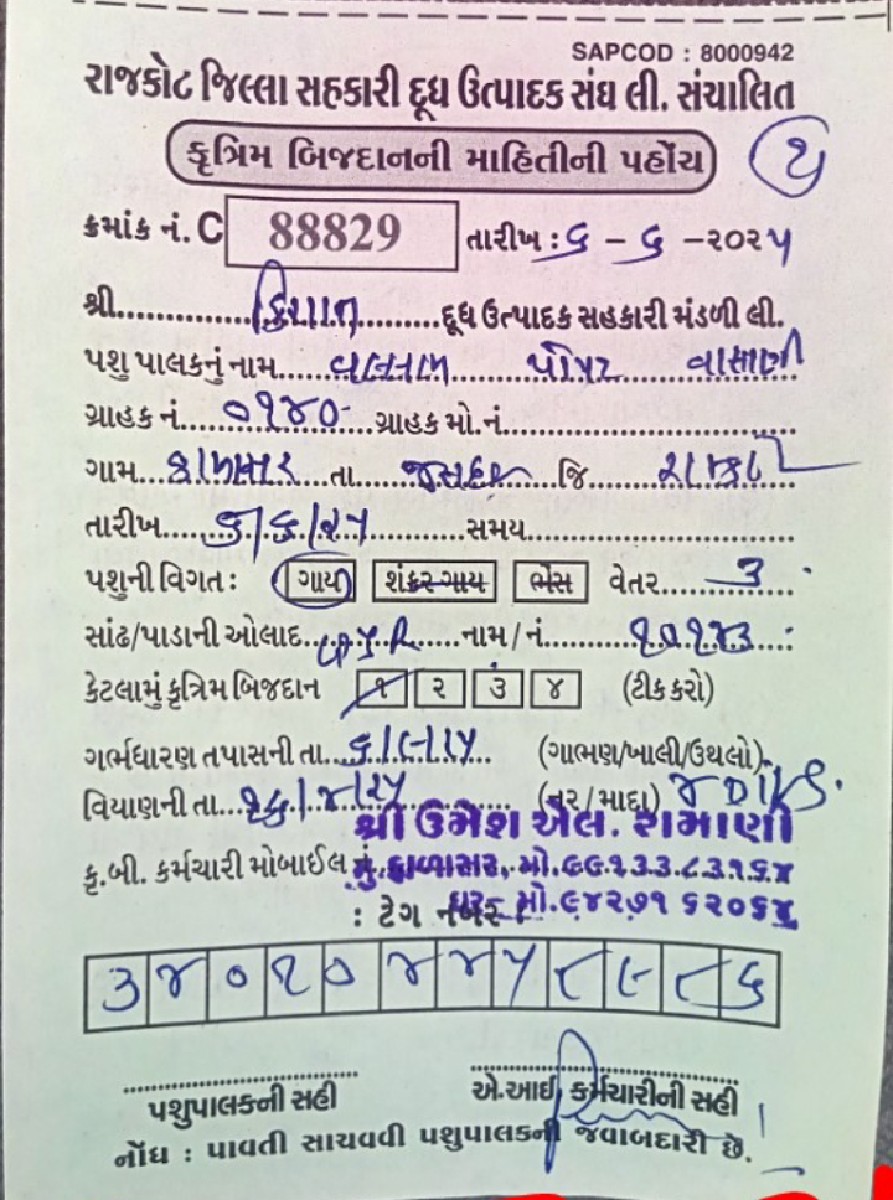 SAPCOD : 8000942
રાજકોટ જિલ્લા સહકારી દૂધ ઉત્પાદક સંઘ લી. સંચાલિત
કૃત્રિમ બિજદાનની માહિતીની પહોંચ
ક્રમાંક નં. C 88829 તારીખ : ૬ - ૬ - ૨૦૨૫
શ્રી.............કિશાન.........દૂધ ઉત્પાદક સહકારી મંડળી લી.
પશુ પાલકનું નામ......વલ્લભ પોપટ વાસાણી
ગ્રાહક નં....૦૧૪૦....ગ્રાહક મો.નં.
ગામ...કાળાસર...તા.....જસદણ...જિ
તારીખ....૬/૬/૨૫..........સમય
પશુની વિગત : ગાય શંકર ગાય ભેંસ વેતર.......૩
સાંઢ/પાડાની ઓલાદ.......નામ/નં......૧૦૧૪૩
કેટલામું કૃત્રિમ બિજદાન ૧ ૨ ૩ ૪ (ટીક કરો)
ગર્ભધારણ તપાસની તા. (ગાભણ/ખાલી/ઉથલો)
વિયાણની તા...૧૬/૪/૨૫ (નર/માદા)
શ્રી ઉમેશ એલ. રામાણી
કૃ.બી. કર્મચારી મોબાઈલ નં. કાળાસર, મો.૯૯૧૩૩૮૩૧૬૪
: ટેગ નંબર : ઘર- મો.૯૪૨૭૧ ૬૨૦૬૪
૩ ૪ ૦ ૧ ૦ ૪ ૪ ૫ ૮ ૯ ૮ ૬
પશુપાલકની સહી એ.આઈ. કર્મચારીની સહી
નોંધ : પાવતી સાચવવી પશુપાલકની જવાબદારી છે.